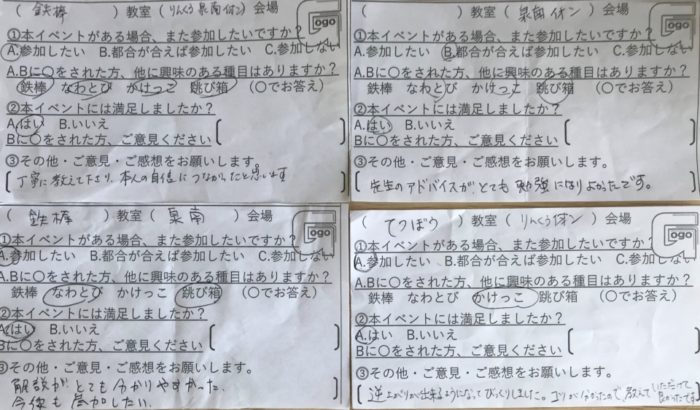 ( 鉄棒 ) 教室 ( りんくう泉南イオン ) 会場
ogo
①本イベントがある場合、また参加したいですか?
A.参加したい B.都合が合えば参加したい C.参加しない
A.Bに〇をされた方、他に興味のある種目はありますか?
鉄棒 なわとび かけっこ 跳び箱 (〇でお答え)
②本イベントには満足しましたか?
A.はい B.いいえ
Bに〇をされた方、ご意見ください
③その他・ご意見・ご感想をお願いします。
丁寧に教えて下さり、本人の自信につながったと思います
( ) 教室 ( 泉南イオン ) 会場
ogo
①本イベントがある場合、また参加したいですか?
A.参加したい B.都合が合えば参加したい C.参加しない
A.Bに〇をされた方、他に興味のある種目はありますか?
鉄棒 なわとび かけっこ 跳び箱 (〇でお答え)
②本イベントには満足しましたか?
A.はい B.いいえ
Bに〇をされた方、ご意見ください
③その他・ご意見・ご感想をお願いします。
先生のアドバイスが、とても勉強になりよかったです。
( 鉄棒 ) 教室 ( 泉南 ) 会場
ogo
①本イベントがある場合、また参加したいですか?
A.参加したい B.都合が合えば参加したい C.参加しない
A.Bに〇をされた方、他に興味のある種目はありますか?
鉄棒 なわとび かけっこ 跳び箱 (〇でお答え)
②本イベントには満足しましたか?
A.はい B.いいえ
Bに〇をされた方、ご意見ください
③その他・ご意見・ご感想をお願いします。
解説がとても分かりやすかった。
今後も参加したい。
( てつぼう ) 教室 ( りんくうイオン ) 会場
ogo
①本イベントがある場合、また参加したいですか?
A.参加したい B.都合が合えば参加したい C.参加しない
A.Bに〇をされた方、他に興味のある種目はありますか?
鉄棒 なわとび かけっこ 跳び箱 (〇でお答え)
②本イベントには満足しましたか?
A.はい B.いいえ
Bに〇をされた方、ご意見ください
③その他・ご意見・ご感想をお願いします。
逆上がりが出来るようになってびっくりしました。コツが分かったので教えて
いただけて
良かったです